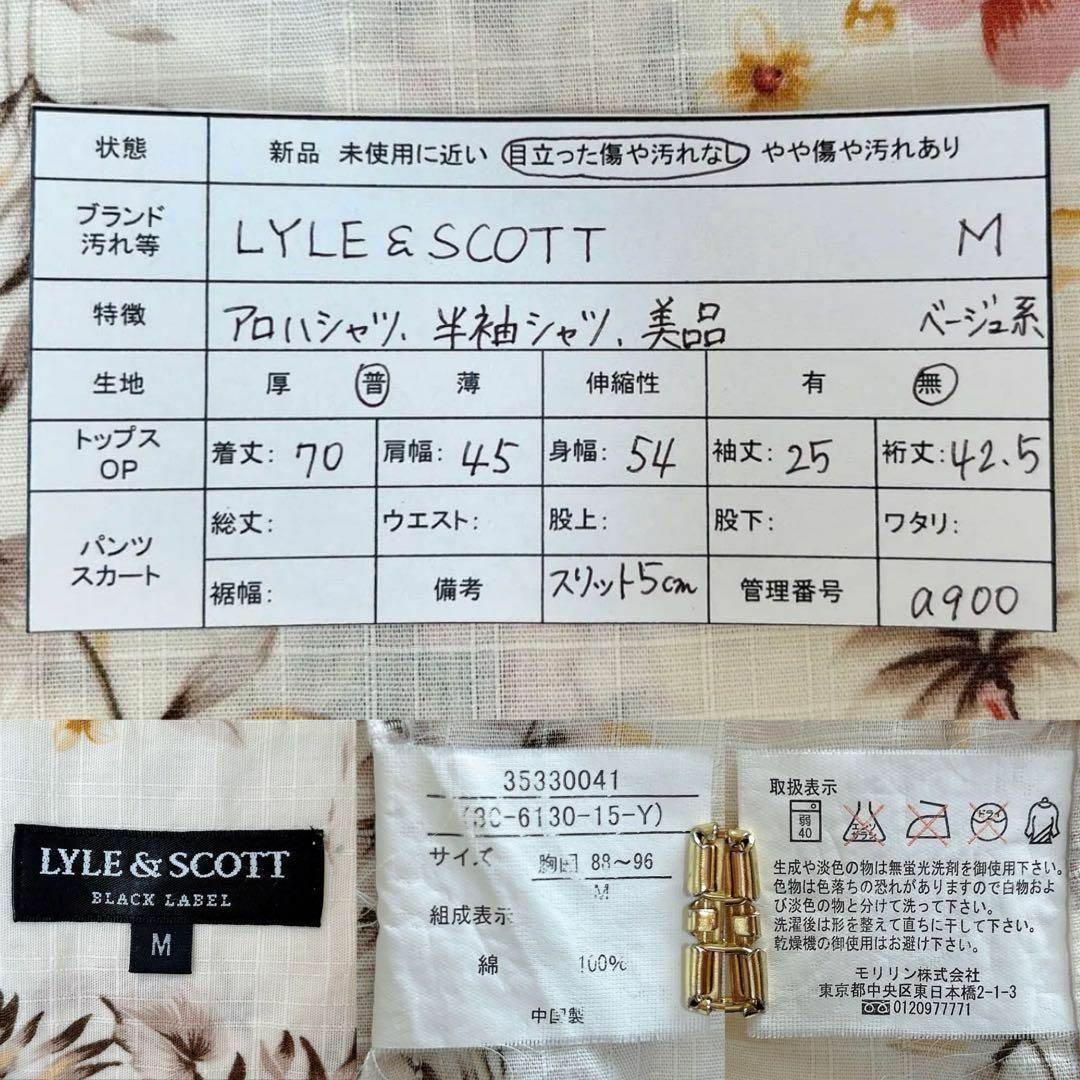 状態 新品 未使用に近い 目立った傷や汚れなし やや傷や汚れあり
ブランド
汚れ等 LYLE & SCOTT M
特徴 アロハシャツ、半袖シャツ、美品 ベージュ系
生地 厚 普 薄 伸縮性 有 無
トップス
OP 着丈: 70 肩幅: 45 身幅: 54 袖丈: 25 裄丈: 42.5
パンツ
スカート
総丈: ウエスト: 股上: 股下: ワタリ:
裾幅: 備考 スリット5cm 管理番号 a900
LYLE & SCOTT
BLACK LABEL
M
35330041
(30-6130-15-Y)
サイズ 胸囲 88〜96
M
組成表示
綿 100%
中国製
取扱表示
弱
40
エンソ
サラシ
ドライ
生成や淡色の物は無蛍光洗剤を御使用下さい。
色物は色落ちの恐れがありますので白物およ
び淡色の物と分けて洗って下さい。
洗濯後は形を整えて直ちに干して下さい。
乾燥機の御使用はお避け下さい。
モリリン株式会社
東京都中央区東日本橋2-1-3
0120977771